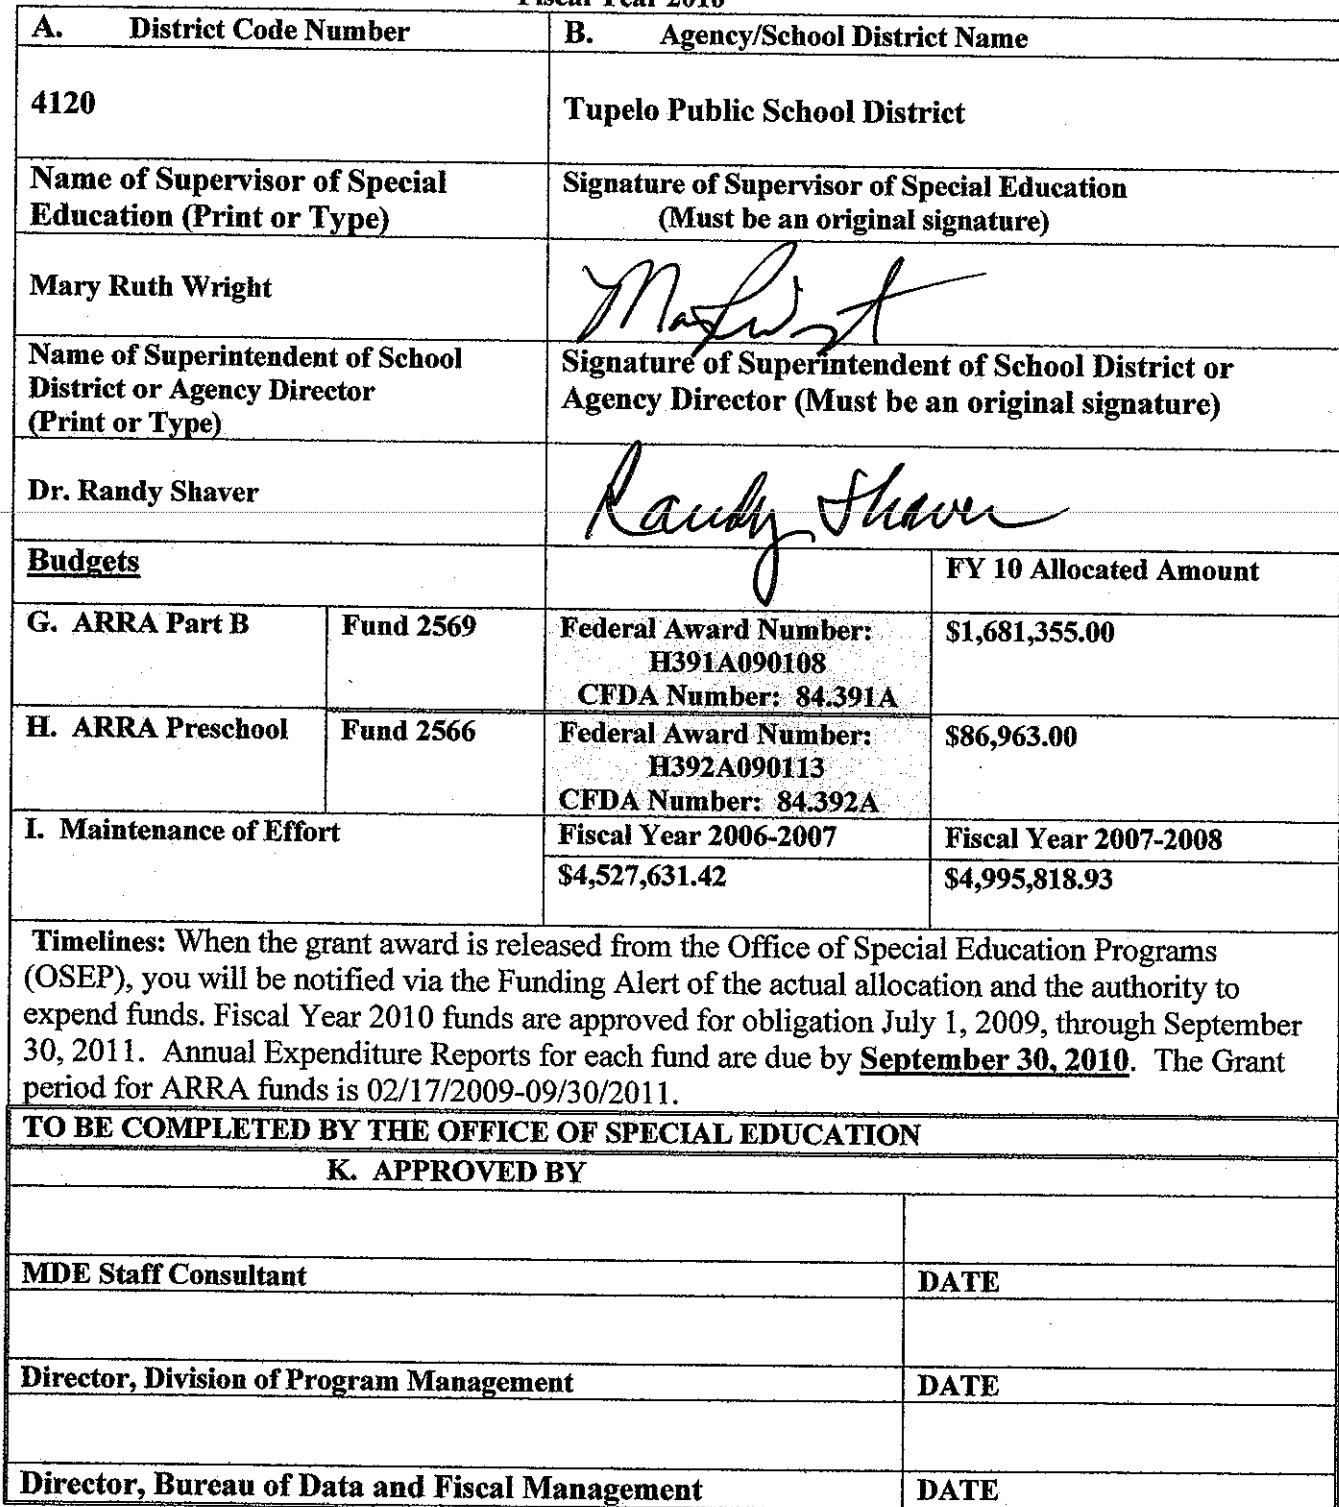 Fiscal Year 2010
A. District Code Number
B. Agency/School District Name
4120
Tupelo Public School District
Name of Supervisor of Special
Education (Print or Type)
Signature of Supervisor of Special Education
(Must be an original signature)
Mary Ruth Wright
Name of Superintendent of School
District or Agency Director
(Print or Type)
Signature of Superintendent of School District or
Agency Director (Must be an original signature)
Dr. Randy Shaver
Randy Shaver
Budgets
FY 10 Allocated Amount
G. ARRA Part B
Fund 2569
Federal Award Number:
H391A090108
CFDA Number: 84.391A
$1,681,355.00
H. ARRA Preschool
Fund 2566
Federal Award Number:
H392A090113
CFDA Number: 84.392A
$86,963.00
I. Maintenance of Effort
Fiscal Year 2006-2007
Fiscal Year 2007-2008
$4,527,631.42
$4,995,818.93
Timelines: When the grant award is released from the Office of Special Education Programs
(OSEP), you will be notified via the Funding Alert of the actual allocation and the authority to
expend funds. Fiscal Year 2010 funds are approved for obligation July 1, 2009, through September
30, 2011. Annual Expenditure Reports for each fund are due by September 30, 2010. The Grant
period for ARRA funds is 02/17/2009-09/30/2011.
TO BE COMPLETED BY THE OFFICE OF SPECIAL EDUCATION
K. APPROVED BY
MDE Staff Consultant
DATE
Director, Division of Program Management
DATE
Director, Bureau of Data and Fiscal Management
DATE